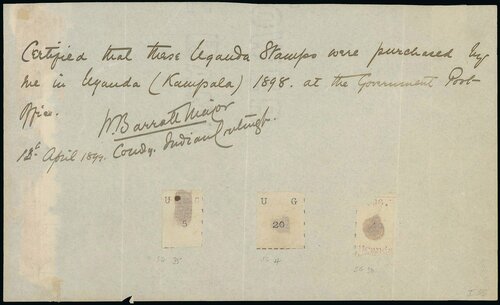 Certified that these Uganda Stamps were purchased by
me in Uganda (Kampala) 1898. at the Government Post
Office.
W Barratt Major
12th April 1899. Comdg. Indian Contingt.
U G
5
U G
20
U G
SG 35
SG 4